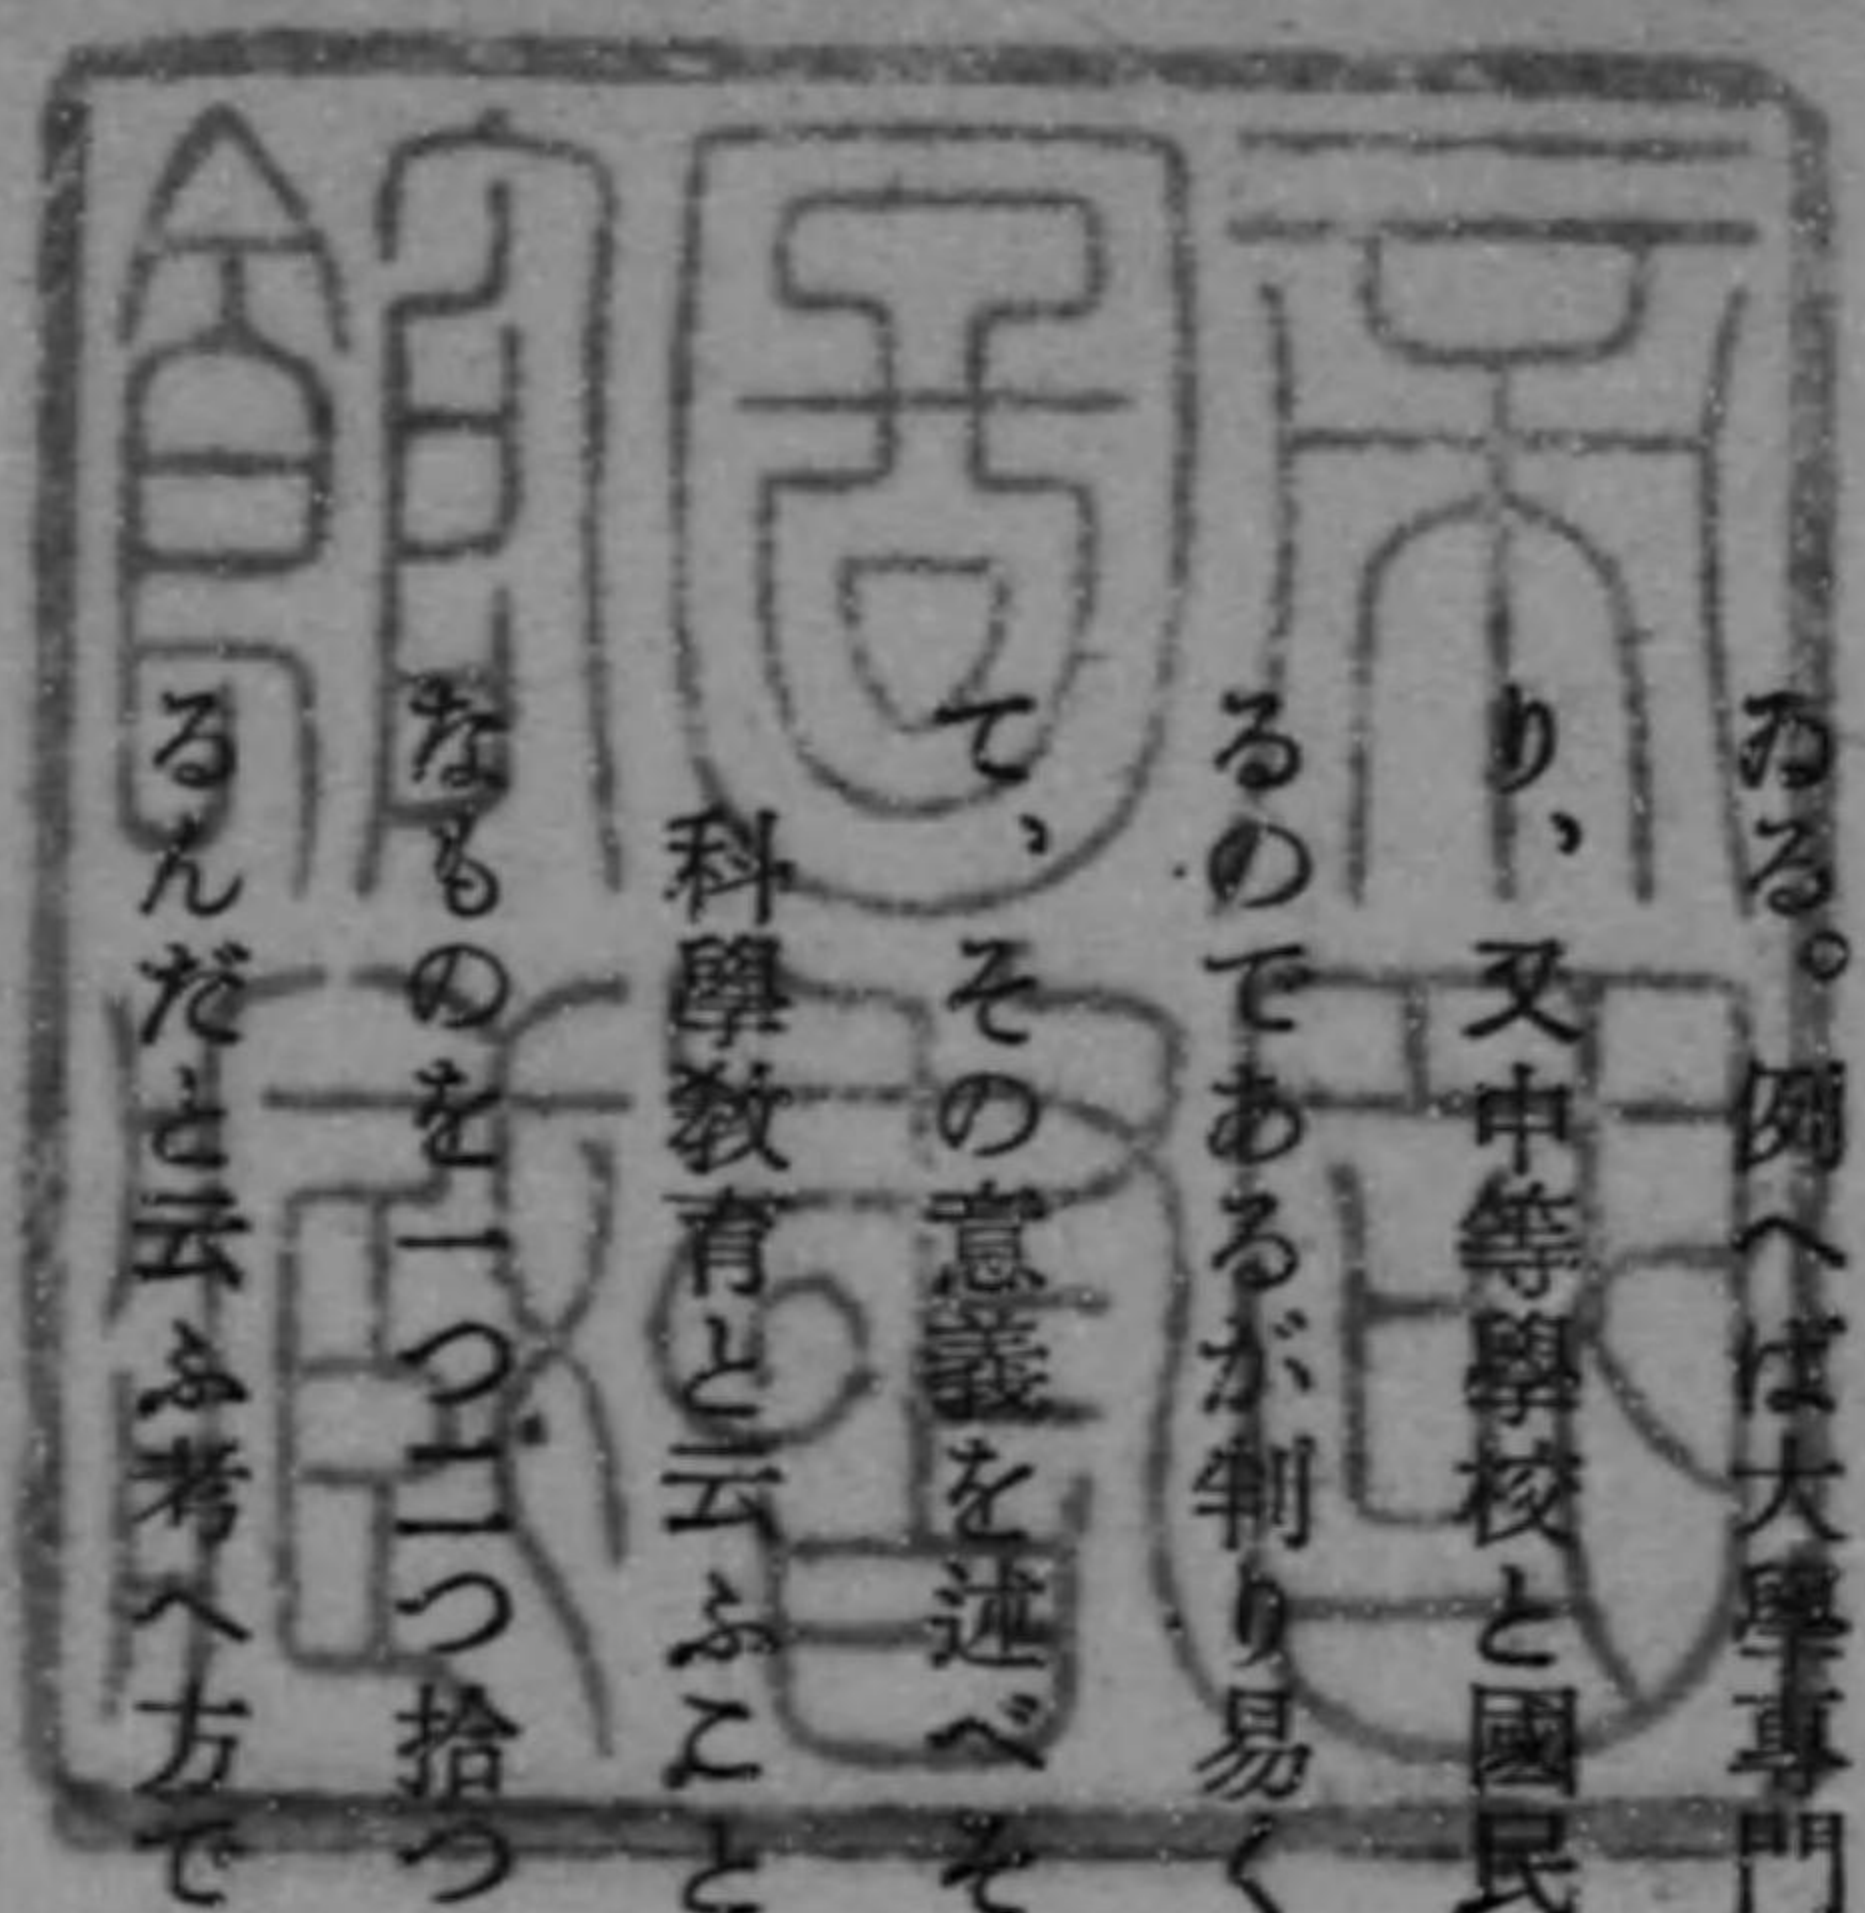 ゐる。例へば大學專門
り、又中等學校と國民
るのであるが判り易く
て、その意義を述べそ
科學教育と云ふこと
なものを一つ二つ拾つ
るんだと云ふ考へ方で